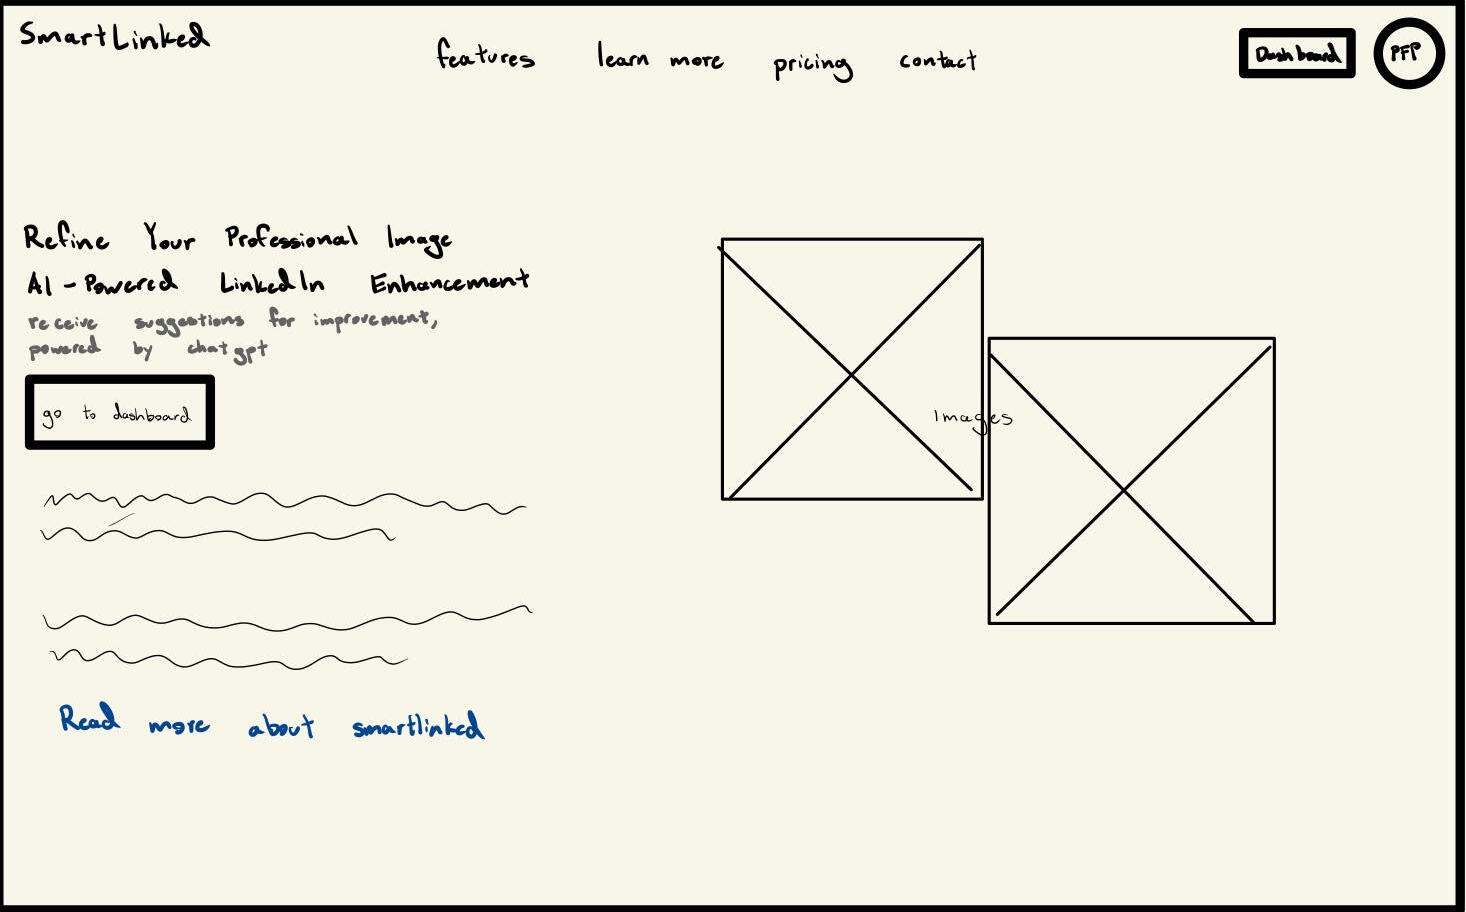 SmartLinked
features learn more pricing contact
Dashboard
PFP
Refine Your Professional Image
AI-Powered LinkedIn Enhancement
receive suggestions for improvement,
powered by chatgpt
go to dashboard
Images
Read more about smartlinked